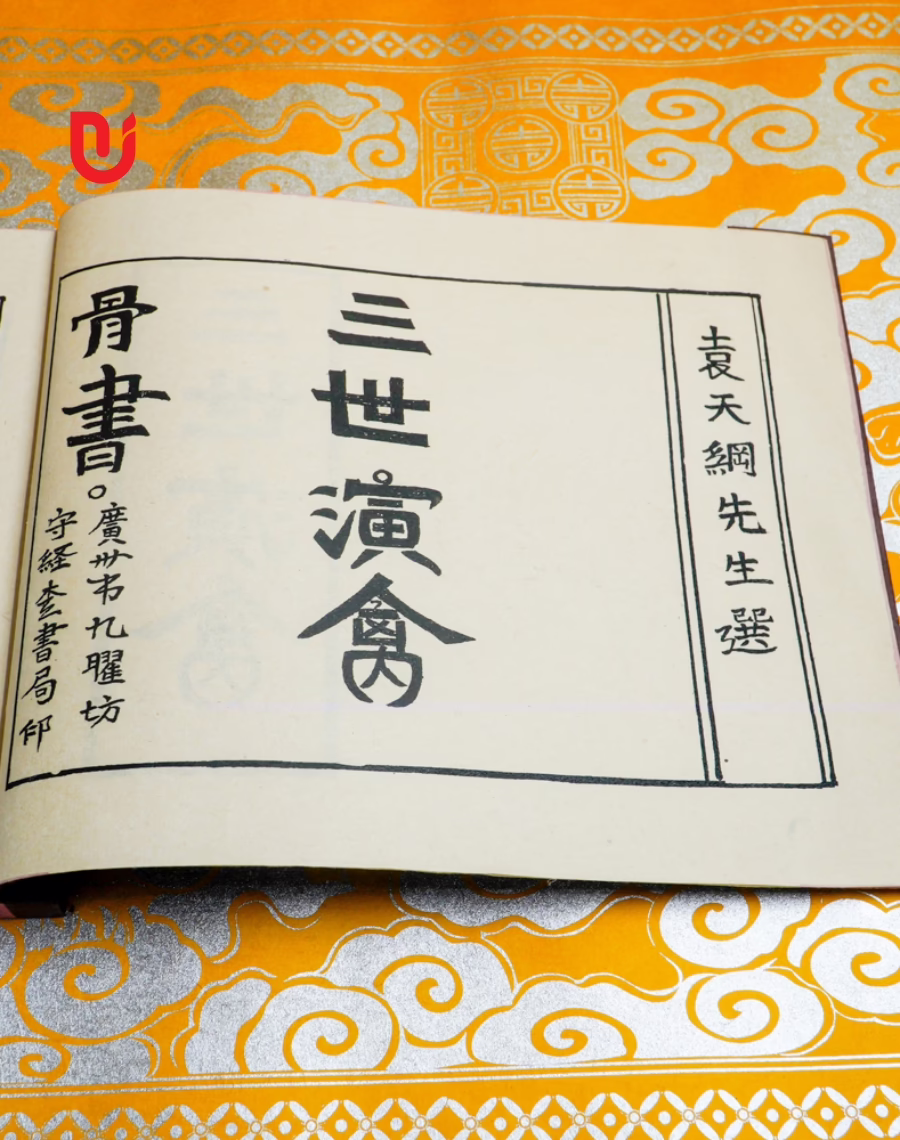 袁天綱先生選
三世演禽
骨書。
廣州市九曜坊
守経堂書局印